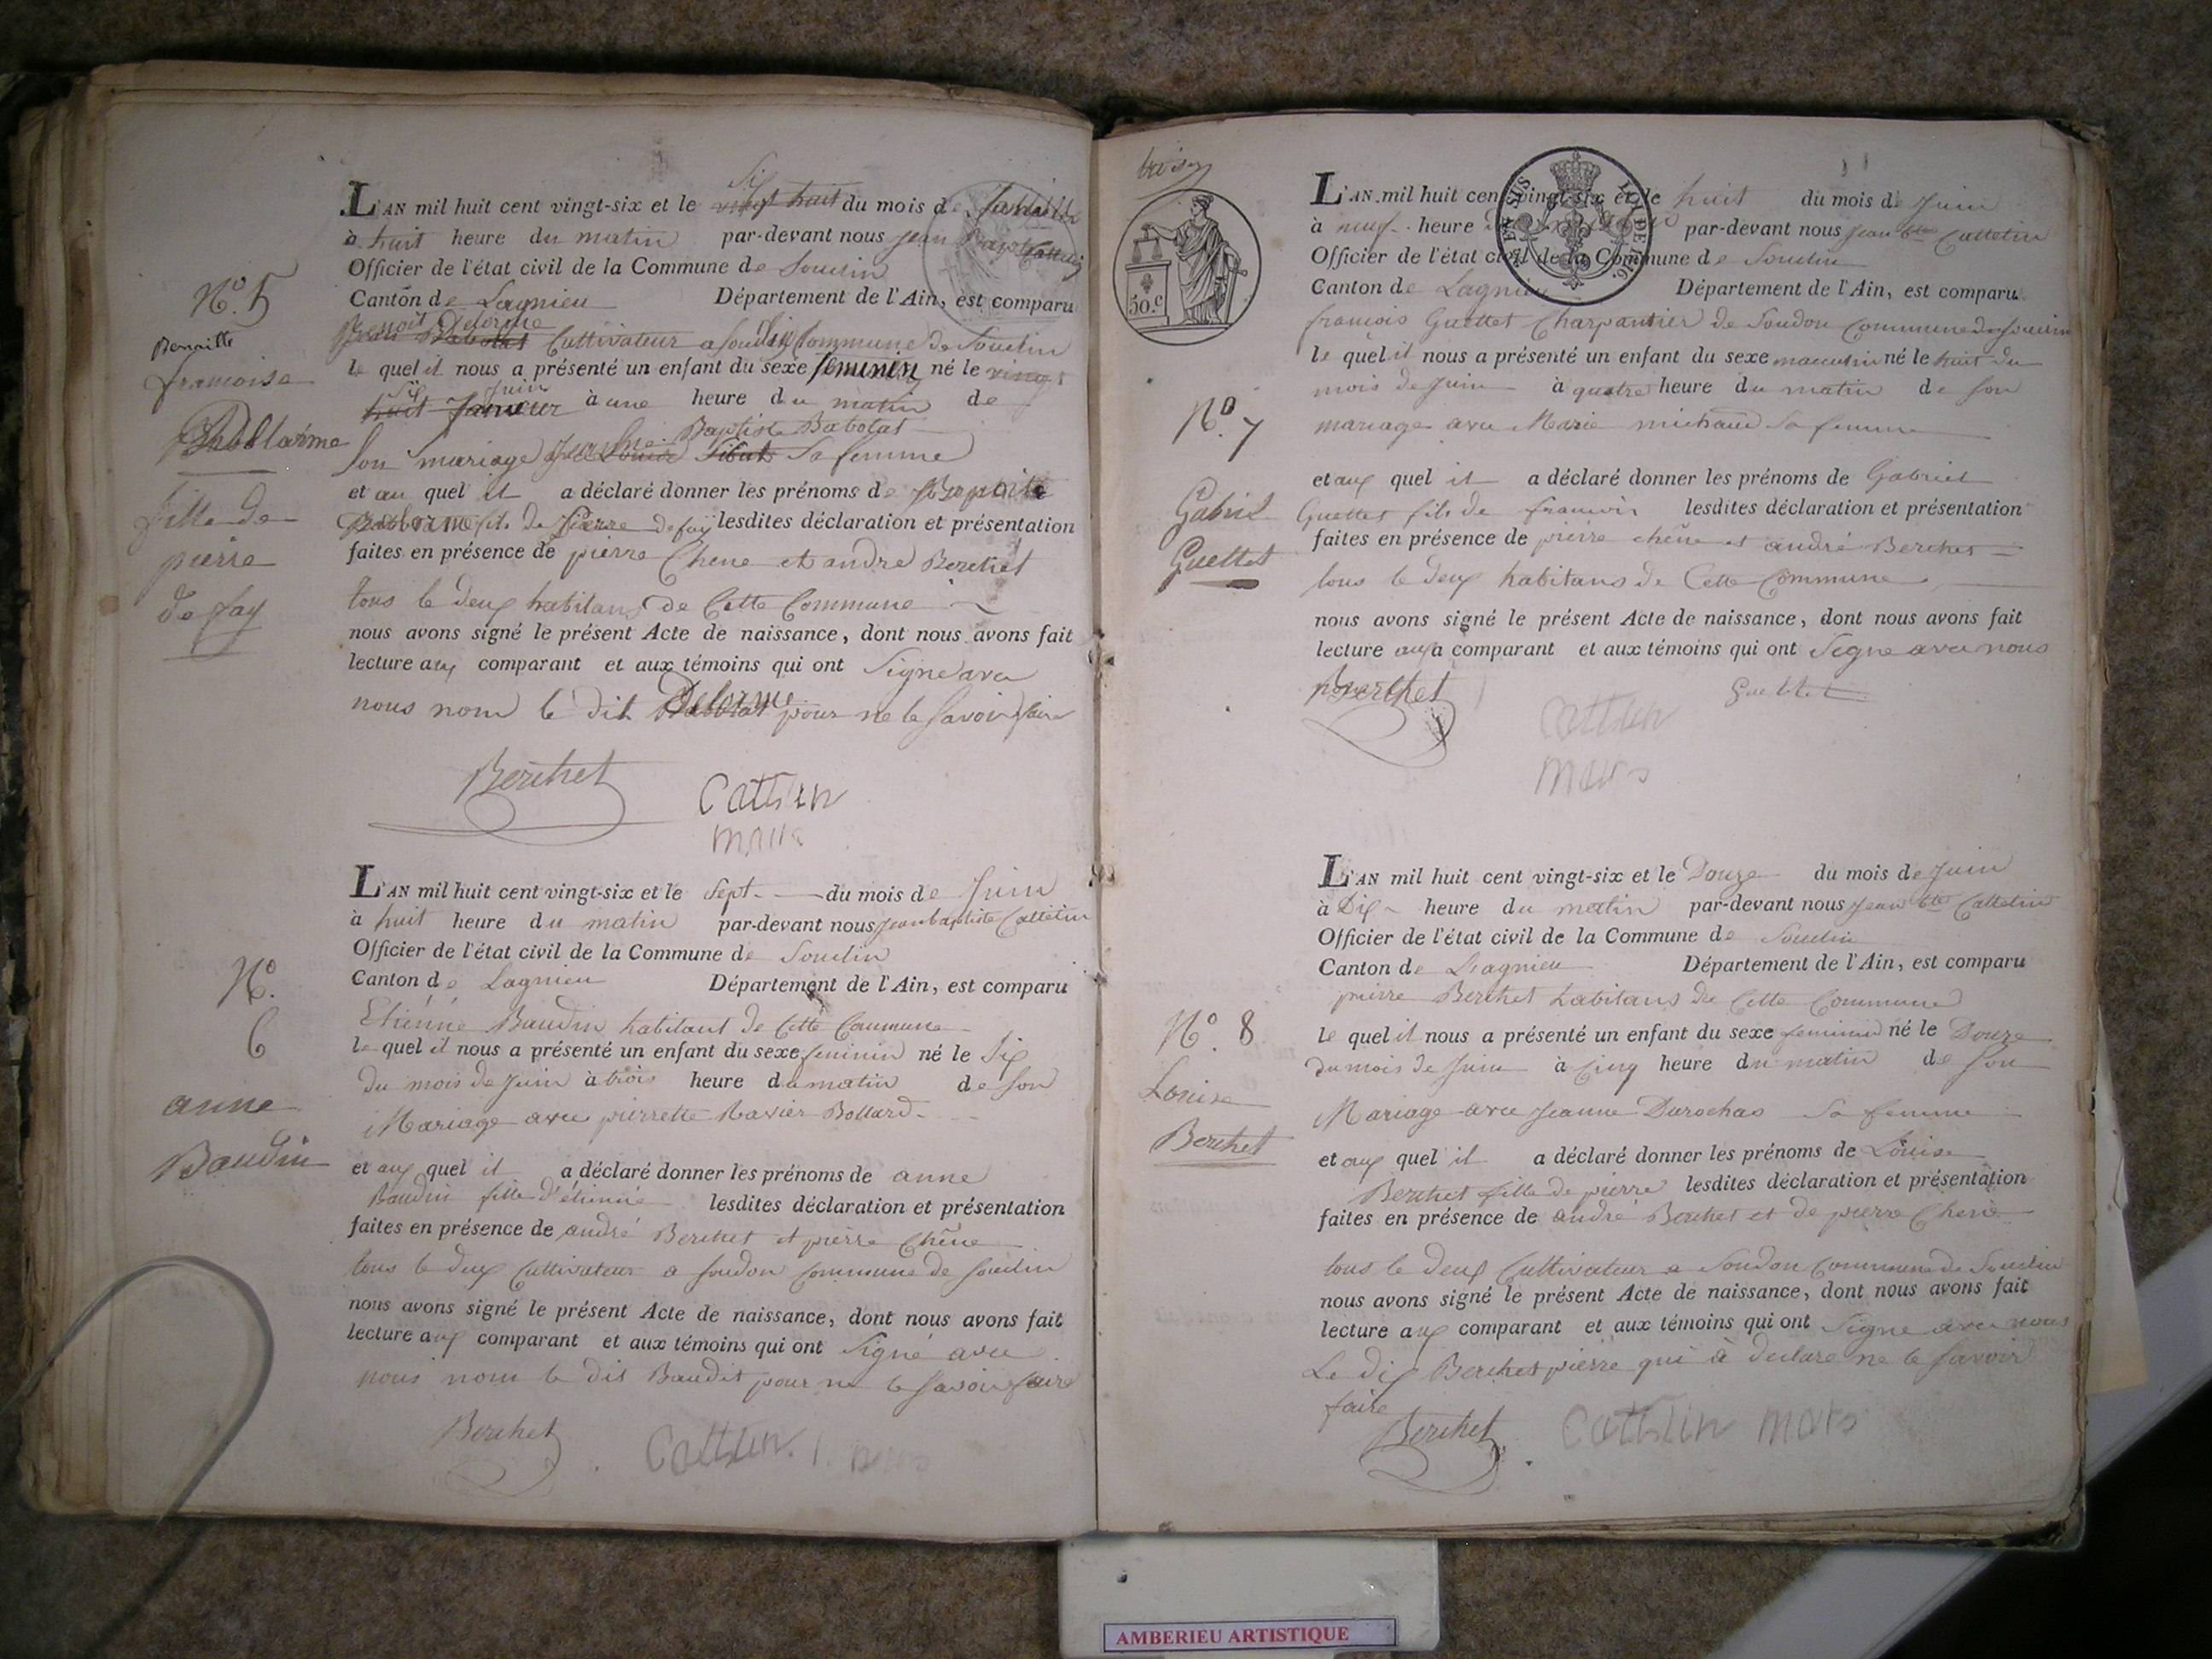 N.º 5
françoise
fille de
pierre
de fay
L'AN mil huit cent vingt-six et le Six vingt huit du mois de
à huit heure du matin par-devant nous jean Baptiste Cattelin
Officier de l'état civil de la Commune de Souclin
Canton de Lagnieu Département de l'Ain, est comparu
Benoit Delorme
Cultivateur a Commune de Souclin
le quel il nous a présenté un enfant du sexe feminin né le vingt
Six Juin
huit Janvier à une heure du matin de
Baptiste Babolat
Son mariage Sa femme
et au quel il a déclaré donner les prénoms de
de Pierre de fay lesdites déclaration et présentation
faites en présence de pierre Chene et andré Berthet
tous le deux habitans de Cette Commune
nous avons signé le présent Acte de naissance, dont nous avons fait
lecture aux comparant et aux témoins qui ont Signé avec
nous nom le dit Delorme pour ne le Savoir faire
Berthet Cattlin
N.º
6
anne
Baudin
L'AN mil huit cent vingt-six et le Sept du mois de Juin
à huit heure du matin par-devant nous jean baptiste Cattelin
Officier de l'état civil de la Commune de Souclin
Canton de Lagnieu Département de l'Ain, est comparu
Etienne Baudin habitant de Cette Commune
le quel il nous a présenté un enfant du sexe feminin né le Six
du mois de Juin à trois heure du matin de Son
Mariage avec pierrette Ravier Bollard
et aux quel il a déclaré donner les prénoms de anne
Baudin fille d'étienne lesdites déclaration et présentation
faites en présence de andré Berthet et pierre Chêne
tous le deux Cultivateur a Soudon Commune de Souclin
nous avons signé le présent Acte de naissance, dont nous avons fait
lecture aux comparant et aux témoins qui ont Signé avec
nous nom le dit Baudit pour ne le Savoir faire
Berthet
50.c
N.º 7
Gabriel
Guettet
L'AN mil huit cent vingt-six et le huit du mois de Juin
à neuf heure par-devant nous Jean bte Cattelin
Officier de l'état civil de la Commune de Souclin
Canton de Lagnieu Département de l'Ain, est comparu
francois Guettet Charpantier de Soudon Commune de Souclin
le quel il nous a présenté un enfant du sexe masculin né le huit du
mois de Juin à quatre heure du matin de Son
mariage avec Marie michaud Sa femme
et aux quel il a déclaré donner les prénoms de Gabriel
Guettet fils de francois lesdites déclaration et présentation
faites en présence de pierre chêne et andré Berthet
tous le deux habitans de Cette Commune
nous avons signé le présent Acte de naissance, dont nous avons fait
lecture aux comparant et aux témoins qui ont Signe avec nous
Berthet Guettet
N.º 8
Louise
Berthet
L'AN mil huit cent vingt-six et le Douze du mois de Juin
à Dix heure du matin par-devant nous Jean bte Cattelin
Officier de l'état civil de la Commune de Souclin
Canton de Lagnieu Département de l'Ain, est comparu
pierre Berthet habitans de Cette Commune
le quel il nous a présenté un enfant du sexe feminin né le Douze
du mois de Juin à Cinq heure du matin de Son
Mariage avec Jeanne Durochas Sa femme
et aux quel il a déclaré donner les prénoms de Louise
Berthet fille de pierre lesdites déclaration et présentation
faites en présence de andré Berthet et de pierre Chene
tous le deux Cultivateur a Soudon Commune de Souclin
nous avons signé le présent Acte de naissance, dont nous avons fait
lecture aux comparant et aux témoins qui ont Signe avec nous
Le dix Berthet pierre qui à declare ne le Savoir
faire
Berthet
AMBERIEU ARTISTIQUE